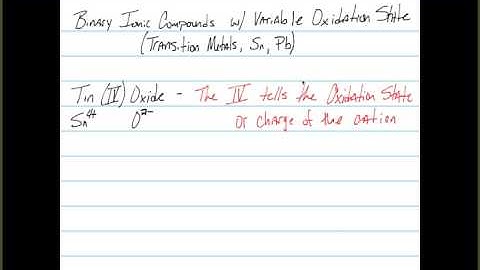 Binary Ionic Compounds w/ Variable Oxidation State
(Transition Metals, Sn, Pb)
Tin (IV) Oxide - The IV tells the Oxidation State
Sn⁴⁺ O²⁻ or charge of the cation